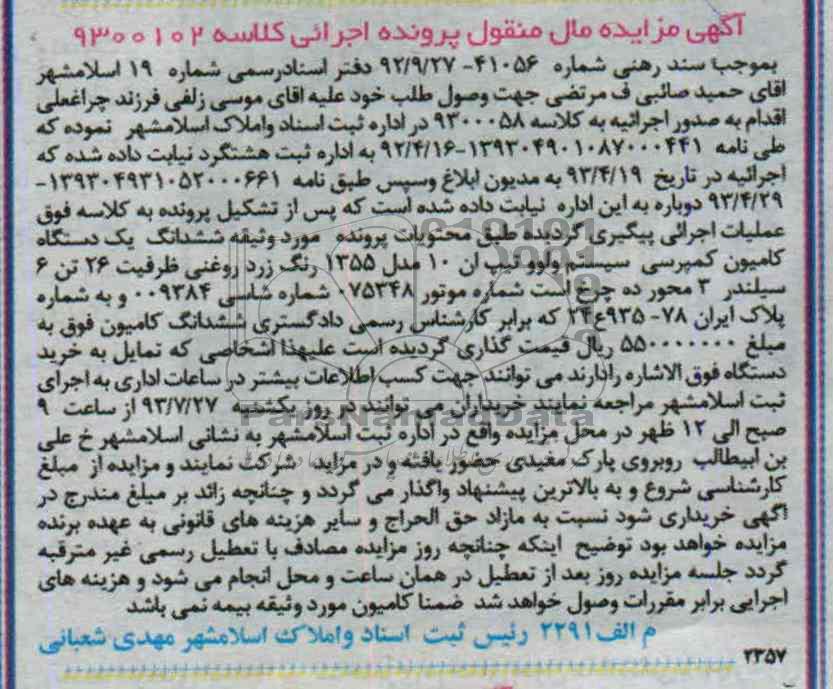 آگهی مزایده مال منقول پرونده اجرائی کلاسه ۹۳۰۰۱۰۲
بموجب سند رهنی شماره ۴۱۰۵۶- ۹۲/۹/۲۷ دفتر اسنادرسمی شماره ۱۹ اسلامشهر
اقای حمید صائبی ف مرتضی جهت وصول طلب خود علیه اقای موسی زلفی فرزند چراغعلی
اقدام به صدور اجرائیه به کلاسه ۹۳۰۰۰۵۸ در اداره ثبت اسناد واملاک اسلامشهر نموده که
طی نامه ۱۳۹۳۰۴۹۰۱۰۸۷۰۰۰۴۴۱-۹۲/۴/۱۶ به اداره ثبت هشتگرد نیابت داده شده که
اجرائیه در تاریخ ۹۳/۴/۱۹ به مدیون ابلاغ وسپس طبق نامه ۱۳۹۳۰۴۹۳۱۰۵۲۰۰۰۶۶۱-
۹۳/۴/۲۹ دوباره به این اداره نیابت داده شده است که پس از تشکیل پرونده به کلاسه فوق
عملیات اجرائی پیگیری گردیده طبق محتویات پرونده مورد وثیقه ششدانگ یک دستگاه
کامیون کمپرسی سیستم ولوو تیپ ان ۱۰ مدل ۱۳۵۵ رنگ زرد روغنی ظرفیت ۲۶ تن ۶
سیلندر ۳ محور ده چرخ است شماره موتور ۰۷۵۳۴۸ شماره شاسی ۰۰۹۳۸۴ و به شماره
پلاک ایران ۷۸- ۹۳۵ع۲۴ که برابر کارشناس رسمی دادگستری ششدانگ کامیون فوق به
مبلغ ۵۵۰۰۰۰۰۰۰ ریال قیمت گذاری گردیده است علیهذا اشخاصی که تمایل به خرید
دستگاه فوق الاشاره رادارند می توانند جهت کسب اطلاعات بیشتر در ساعات اداری به اجرای
ثبت اسلامشهر مراجعه نمایند خریداران می توانند در روز یکشنبه ۹۳/۷/۲۷ از ساعت ۹
صبح الی ۱۲ ظهر در محل مزایده واقع در اداره ثبت اسلامشهر به نشانی اسلامشهر خ علی
بن ابیطالب روبروی پارک مفیدی حضور یافته و در مزاید شرکت نمایند و مزایده از مبلغ
کارشناسی شروع و به بالاترین پیشنهاد واگذار می گردد و چنانچه زائد بر مبلغ مندرج در
آگهی خریداری شود نسبت به مازاد حق الحراج و سایر هزینه های قانونی به عهده برنده
مزایده خواهد بود توضیح اینکه چنانچه روز مزایده مصادف با تعطیل رسمی غیر مترقبه
گردد جلسه مزایده روز بعد از تعطیل در همان ساعت و محل انجام می شود و هزینه های
اجرایی برابر مقررات وصول خواهد شد ضمنا کامیون مورد وثیقه بیمه نمی باشد
م الف ۲۲۹۱ رئیس ثبت اسناد واملاک اسلامشهر مهدی شعبانی
۲۳۵۷
ParsNamadData